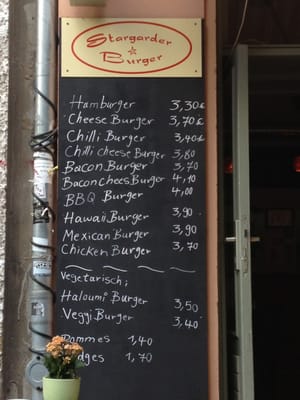 Stargarder
Burger
Hamburger 3,30€
Cheese Burger 3,70€
Chilli Burger 3,40€
Chilli cheese Burger 3,80
Bacon Burger 3,70
Bacon Chees Burger 4,10
BBQ Burger 4,00
Hawaii Burger 3,90
Mexican Burger 3,90
Chicken Burger 3,70
Vegetarisch;
Haloumi Burger 3,50
Veggi Burger 3,40
Pommes 1,40
1,70